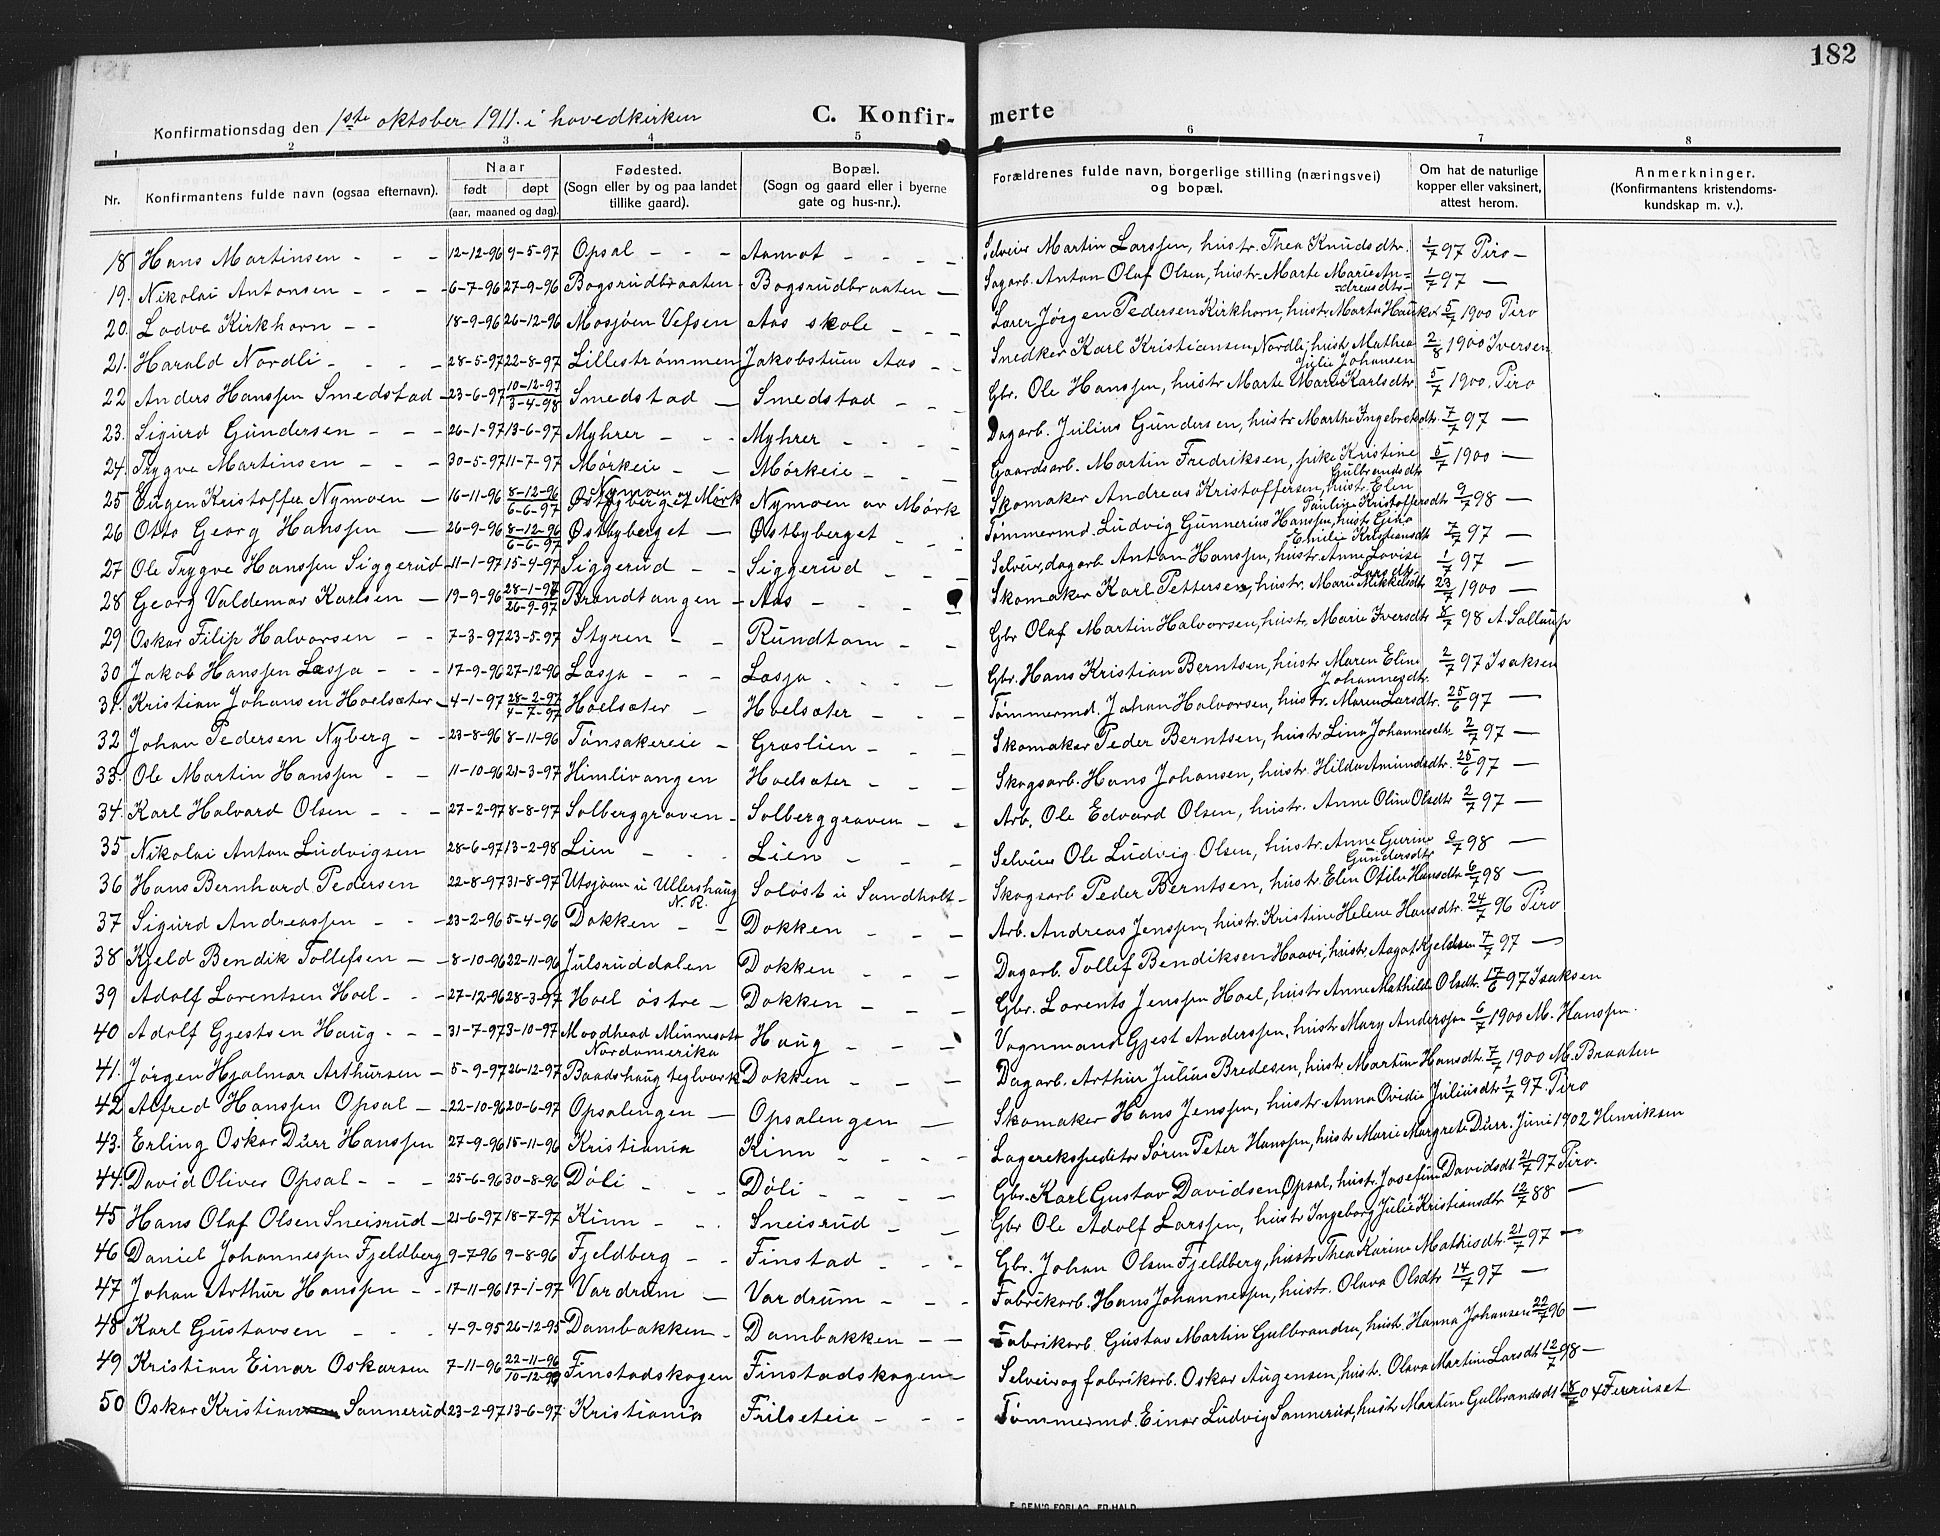 182
Konfirmationsdag den 1ste oktober 1911. i hovedkirken C. Konfir- merte
1 2 3 4 5 6 7 8
Nr. Konfirmantens fulde navn (ogsaa efternavn). Naar født døpt (aar, maaned og dag). Fødested. (Sogn eller by og paa landet tillike gaard). Bopæl. (Sogn og gaard eller i byerne gate og hus-nr.). Forældrenes fulde navn, borgerlige stilling (næringsvei) og bopæl. Om hat de naturlige kopper eller vaksinert, attest herom. Anmerkninger. (Konfirmantens kristendoms-kundskap m. v.).
18 Hans Martinsen - - - 12-12-96 9-5-97 Opsal - - - Aamot - - - - Selveier Martin Larssen, hustr. Thea Knudsdtr. 1/7 97 Piro -
19. Nikolai Antonsen - - - 6-7-96 27-9-96 Bogsrudbraaten - Bogsrudbraaten - Sagarb. Anton Olaf Olsen, hustr. Marte Marie Andreasdtr. 1/7 97 —
20. Lodve Kirkhorn - - 18-9-96 26-12-96 Mosjøen Vefsen Aas skole - - - Lærer Jørgen Pedersen Kirkhorn, hustr. Marta Hauker 5/7 1900 Piro
21. Harald Nordli - - - - 28-5-97 22-8-97 Lillestrømmen Jakobstuen Aas - - Snedker Karl Kristiansen Nordli, hustr. Mathea Julie Johansen 2/8 1900 Iversen
22 Anders Hanssen Smedstad - 23-6-97 10-12-97 3-4-98 Smedstad - Smedstad - - - Gbr. Ole Hanssen, hustr. Marte Marie Karlsdtr. 5/7 1900. Piro
23. Sigurd Gundersen - - - 26-1-97 13-6-97 Myhrer - - - Myhrer - - - - Dagarb. Julius Gundersen, hustr. Marthe Ingebrekdtr. 7/7 97 —
24. Trygve Martinsen - - - 30-5-97 11-7-97 Mørkeie - - Mørkeie - - - Gaardsarb. Martin Fredriksen, pike Kristine Gulbrandsdtr 5/7 1900 —
25 Eugen Kristoffer Nymoen - 16-11-96 8-12-96 6-6-97 Nymoen av Mørk Nymoen av Mørk Skomaker Andreas Kristoffersen, hustr. Elen Pauline Kristoffersdtr 9/7 98 —
26 Otto Georg Hanssen - 26-9-96 8-12-96 6-6-97 Østbyberget - Østbyberget - - - Tømmermd. Ludvig Gunnerius Hanssen, hustr. Gina Emilie Kristiansdtr 7/7 97 —
27 Ole Trygve Hanssen Siggerud - 11-1-97 15-4-97 Siggerud - - Siggerud - - - Selveier, dagarb. Anton Hanssen, hustr. Anne Lovise Larsdtr. 1/7 97 —
28 Georg Valdemar Karlsen - 19-9-96 28-1-97 26-9-97 Brandtangen - Aas - - - - Skomaker Karl Pettersen, hustr. Marie Mikkelsdtr 23/7 1900 —
29 Oskar Filip Halvorsen - - 7-3-97 23-5-97 Styren - - Rundtom - - Gbr Olaf Martin Halvorsen, hustr. Marie Iversdtr 8/7 98 A. Sollaup
30 Jakob Hanssen Løsja - - - 17-9-96 27-12-96 Løsja - - - Løsja - - - Gbr. Hans Kristian Berntsen, hustr. Maren Eline Johannesdtr. 2/7 97 Isaksen
31. Kristian Johansen Hoelsæter - 4-1-97 28-2-97 4-7-97 Hoelsæter - Hoelsæter - - - Tømmermd. Johan Halvorsen, hustr. Maren Larsdtr. 25/6 97 —
32 Johan Pedersen Nyberg - - 23-8-96 8-11-96 Tønsakereie - Græslien - - - Skomaker Peder Berntsen, hustr. Lina Johannesdtr. 2/7 97 —
33. Ole Martin Hanssen - - 11-10-96 21-3-97 Himlivangen Hoelsæter - - - Skogsarb. Hans Johansen, hustr. Hilda Amundsdtr. 25/6 97 —
34. Karl Halvard Olsen - - - 27-2-97 8-8-97 Solberggraven - Solberggraven - - Arb. Ole Edvard Olsen, hustr. Anne Oline Olsdtr 2/7 97 —
35 Nikolai Anton Ludvigsen 28-6-97 13-2-98 Lien - - - Lien - - - Selveier Ole Ludvig Olsen, hustr. Anne Gurine Gundersdtr 9/7 98 —
36 Hans Bernhard Pedersen 22-8-97 31-8-97 Utsjøen u Ullershaug N. R. Soløst u Sandholt - Skogsarb Peder Berntsen, hustr. Elen Otilie Hansdtr 6/7 98 —
37 Sigurd Andreassen - - - 23-2-96 5-4-96 Dokken - - Dokken - - - Arb. Andreas Jenssen, hustr. Kristine Helene Hansdtr. 24/7 96 Piro
38 Kjeld Bendik Tollefsen - - 8-10-96 22-11-96 Julsruddalen Dokken - - - Dagarb. Tollef Bendiksen Haavi, hustr. Aagot Kjeldsen 7/7 97 —
39 Adolf Lorentsen Hoel - - - 27-12-96 28-3-97 Hoel østre - Dokken - - - Gbr. Lorents Jenssen Hoel, hustr. Anne Mathilde Olsdtr. 17/6 97 Isaksen
40 Adolf Gjestsen Haug - - - 31-7-97 3-10-97 Moodhead Minnesota Nordamerika Haug - - - Vognmand Gjest Anderssen, hustr. Mary Anderssen 6/7 1900 M. Hanssen.
41. Jørgen Hjalmar Arthursen - 5-9-97 26-12-97 Baadshaug teglverk Dokken - - - Dagarb. Arthur Julius Bredesen, hustr. Martine Hansdtr. 7/7 1900 M. Braaten
42 Alfred Hanssen Opsal - - 22-10-96 20-6-97 Opsalengen - Opsalengen - Skomaker Hans Jenssen, hustr. Anna Ovidie Juliusdtr 1/7 97 Piro
43. Erling Oskar Dürr Hanssen 27-9-96 15-11-96 Kristiania Kinn - - - - Lagerekspeditør Søren Peter Hanssen, hustr. Marie Margrete Dürr. Juni 1902 Henriksen
44. David Oliver Opsal - - - 25-6-96 30-8-96 Døli - - - Døli - - - - Gbr. Karl Gustav Davidsen Opsal, hustr. Josefine Davidsdt 21/7 97 Piro.
45 Hans Olaf Olsen Sneisrud - 21-6-97 18-7-97 Kinn - - - Sneisrud - - Gbr Ole Adolf Larssen, hustr Ingeborg Julie Kristiansdtr 12/7 88 —
46 Daniel Johannessen Fjeldberg 9-7-96 9-8-96 Fjeldberg - - Finstad - - - Gbr. Johan Olsen Fjeldberg, hustr. Thea Karine Mathisdtr. 21/7 97 —
47 Johan Arthur Hanssen - - 17-11-96 17-1-97 Vardrum - Vardrum - - - Fabrikarb. Hans Johannessen, hustr. Olava Olsdtr 14/7 97 —
48 Karl Gustavsen - - - 4-9-95 26-12-95 Dambakken - Dambakken - - Fabrikarb. Gustav Martin Gulbrandsen, hustr. Hanna Johansen 22/7 96 —
49 Kristian Einar Oskarsen 7-11-96 22-11-96 10-12-96 Finstadskogen Finstadskogen - Selveier og fabrikarb. Oskar Augensen, hustr. Olava Martine Larsdt 12/7 98 —
50 Oskar Kristian Sannerud 23-2-97 13-6-97 Kristiania Frilseteie - - - Tømmermd. Einar Ludvig Sannerud, hustr Martine Gulbrandsdt 18/2 04 Ferruset